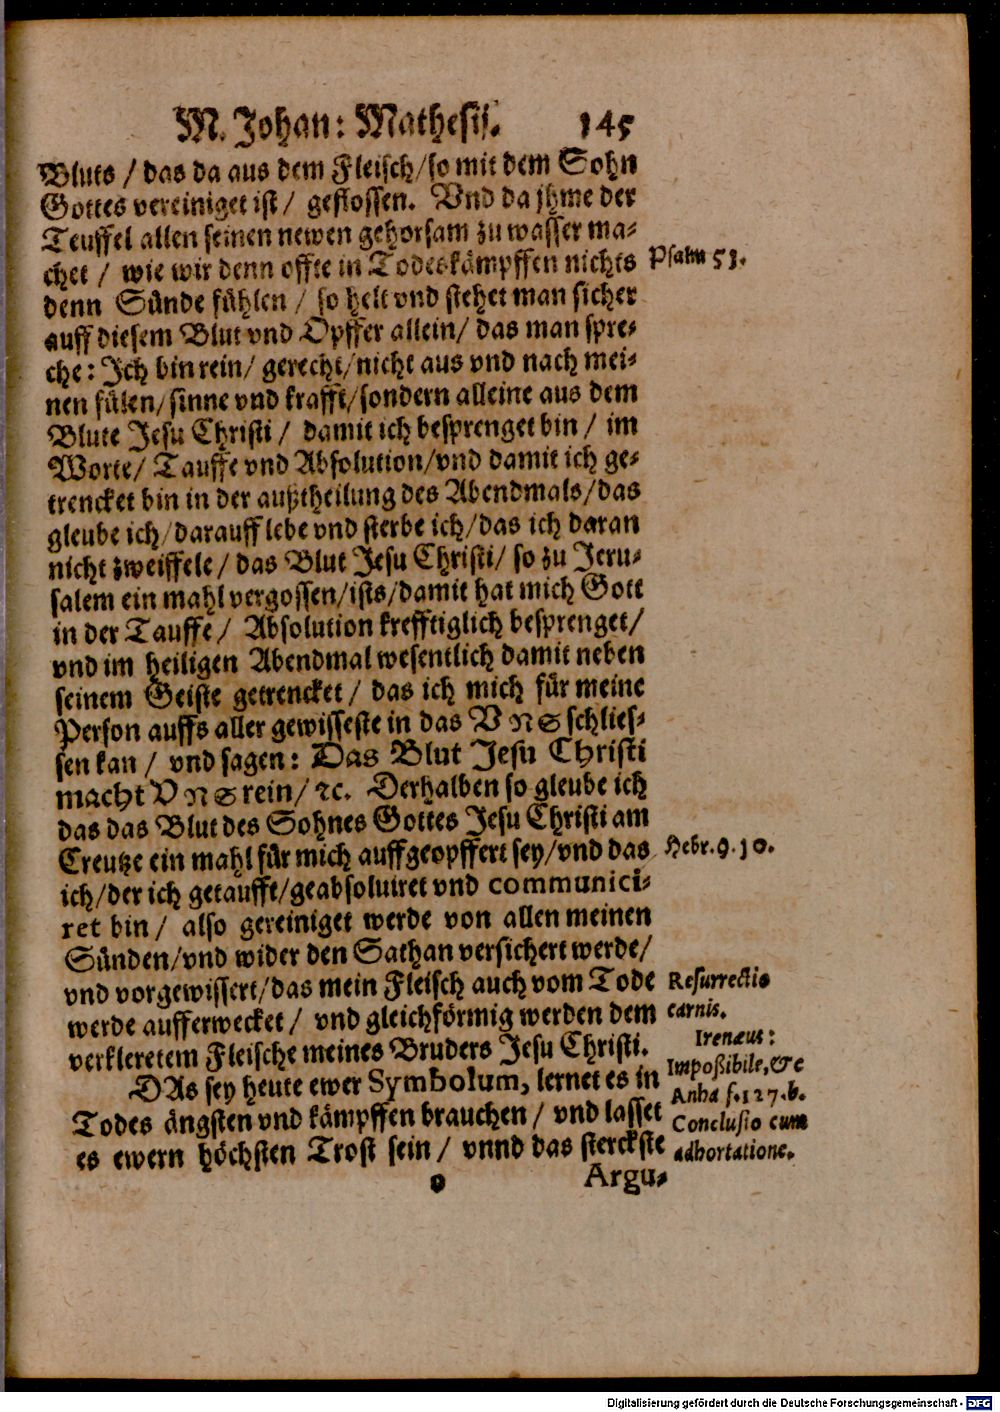 M. Johan: Mathesij. 145
Bluts / das da aus dem Fleisch/so mit dem Sohn
Gottes vereiniget ist / geflossen. Vnd da jhme der
Teuffel allen seinen newen gehorsam zu wasser ma-
chet / wie wir denn offte in Todeskämpffen nichts
Psalm 51.
denn Sünde fühlen / so helt vnd stehet man sicher
auff diesem Blut vnd Opffer allein/ das man spre-
che: Ich bin rein/ gerecht/nicht aus vnd nach mei-
nen fülen/sinne vnd krafft/sondern alleine aus dem
Blute Jesu Christi / damit ich besprenget bin / im
Worte/ Tauffe vnd Absolution/vnd damit ich ge-
trencket bin in der außtheilung des Abendmals/das
gleube ich/darauff lebe vnd sterbe ich/das ich daran
nicht zweiffele/ das Blut Jesu Christi/ so zu Jeru-
salem ein mahl vergossen/ists/damit hat mich Gott
in der Tauffe/ Absolution krefftiglich besprenget/
vnd im heiligen Abendmal wesentlich damit neben
seinem Geiste getrencket/ das ich mich für meine
Person auffs aller gewisseste in das VNS schlies-
sen kan / vnd sagen: Das Blut Jesu Christi
macht VNS rein/ ꝛc. Derhalben so gleube ich
das das Blut des Sohnes Gottes Jesu Christi am
Creutze ein mahl für mich auffgeopffert sey/vnd das
Hebr. 9. 10.
ich/der ich getaufft/geabsoluiret vnd communici-
ret bin / also gereiniget werde von allen meinen
Sünden/vnd wider den Sathan versichert werde/
vnd vorgewissert/das mein Fleisch auch vom Tode
Resurrectio
werde aufferwecket / vnd gleichförmig werden dem
carnis.
verkleretem Fleische meines Bruders Jesu Christi.
Irenæus:
Impoßibile,&c
DAs sey heute ewer Symbolum, lernet es in
Anha f.127.b.
Todes ängsten vnd kämpffen brauchen / vnd lasset
Conclusio cum
es ewern höchsten Trost sein / vnnd das sterckste
adhortatione.
o Argu-
Digitalisierung gefördert durch die Deutsche Forschungsgemeinschaft - DFG